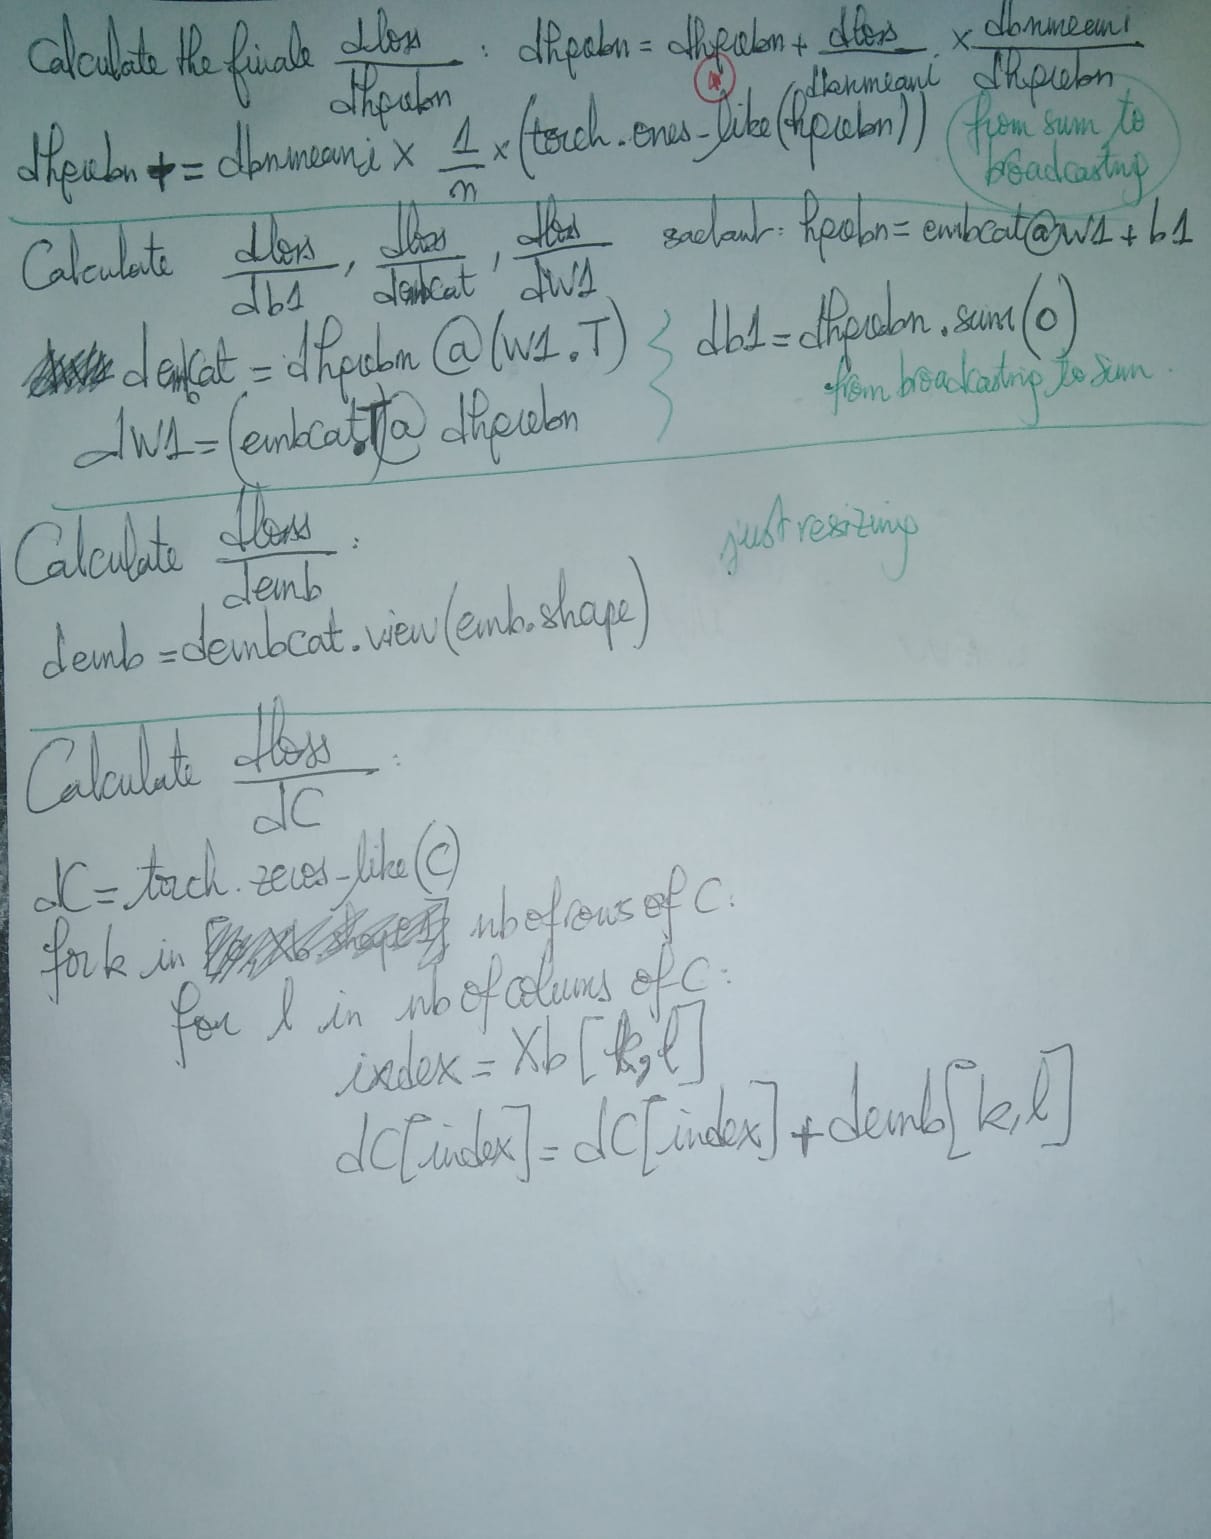 Calculate the finale dloss/dhprebn : dhprebn = dhprebn + dloss/dbnmeani × dbnmeani/dhprebn
dhprebn += dbnmeani × 1/n × (torch.ones_like(hprebn)) from sum to broadcasting
Calculate dloss/db1, dloss/dembcat, dloss/dW1 sachant: hprebn = embcat@W1 + b1
dembcat = dhprebn @ (W1.T) db1 = dhprebn.sum(0)
dW1 = (embcat.T) @ dhprebn from broadcasting to sum.
Calculate dloss/demb : just resizing
demb = dembcat.view(emb.shape)
Calculate dloss/dC :
dC = torch.zeros_like(C)
for k in nb of rows of C:
for l in nb of colums of C:
index = Xb[k,l]
dC[index] = dC[index] + demb[k,l]